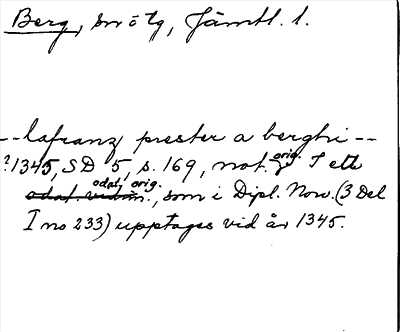 Berg, småtg, Jämtl. l.
--lafranz prester a berghi--
?1345, SD 5, s. 169, not. orig. I ett
odat. orig., som i Dipl. Norv. (3 Del
I no 233) upptages vid år 1345.